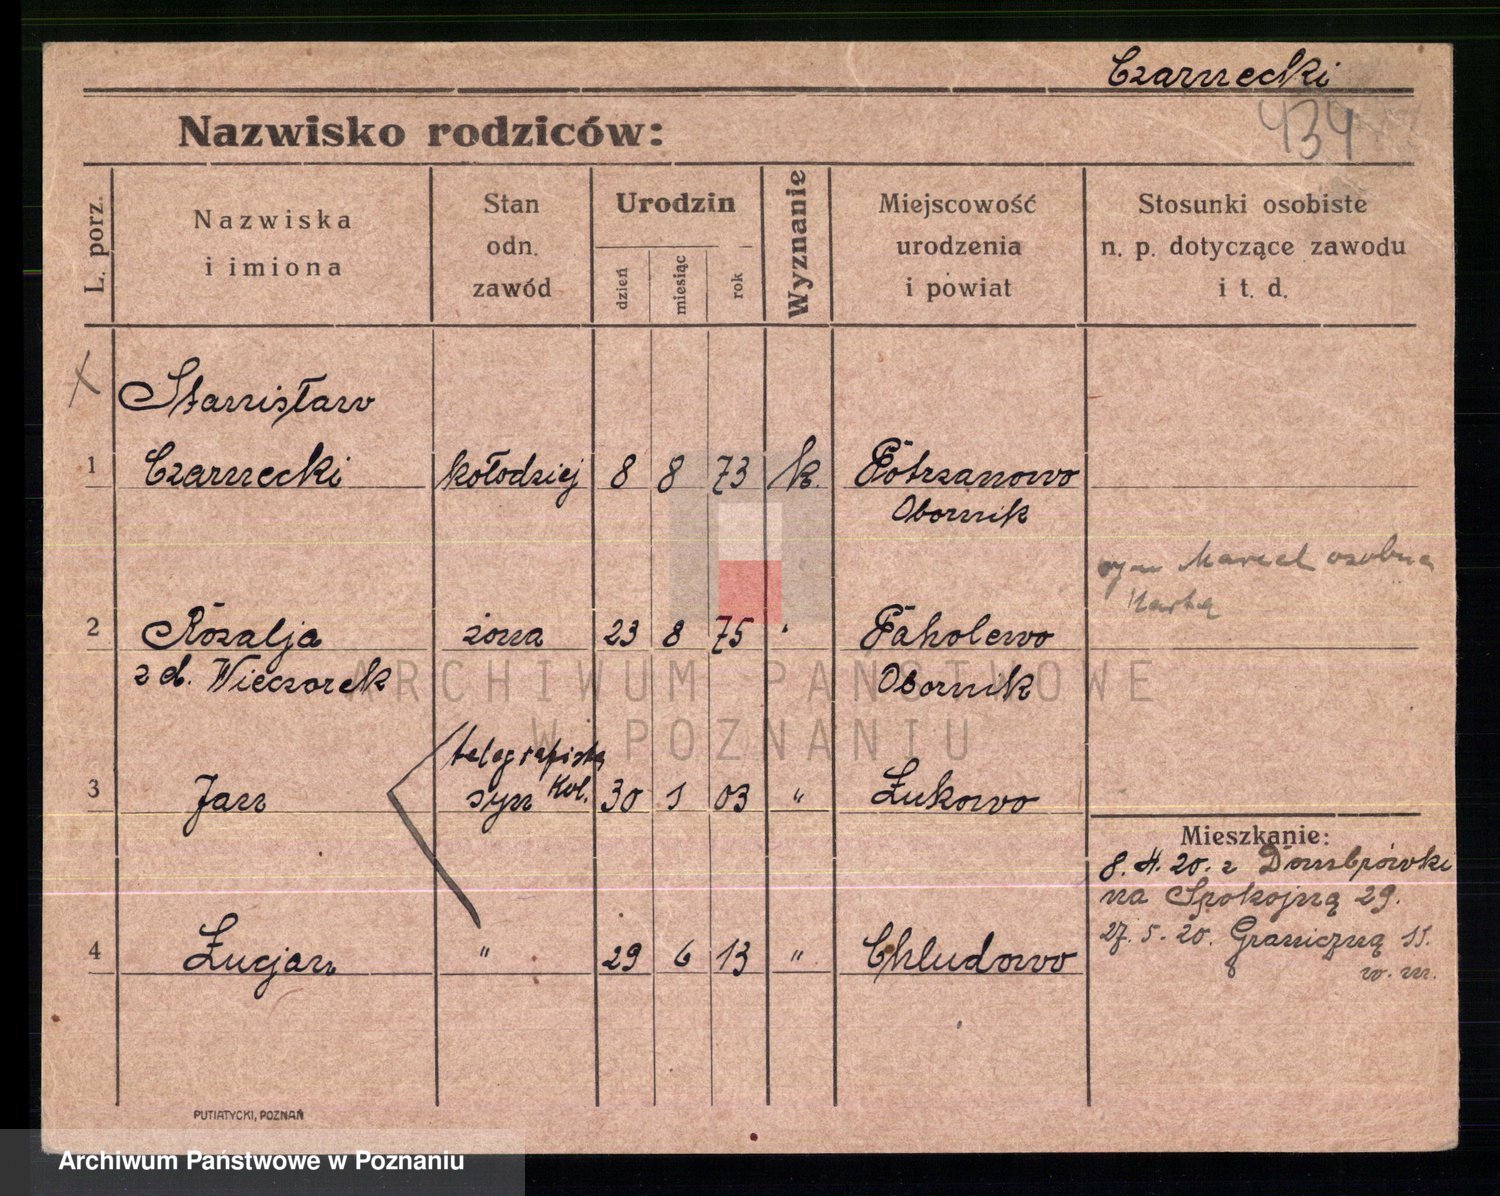 Czarnecki
434
Nazwisko rodziców:
L. porz.
Nazwiska
i imiona
Stan
odn.
zawód
Urodzin
dzień
miesiąc
rok
Wyznanie
Miejscowość
urodzenia
i powiat
Stosunki osobiste
n. p. dotyczące zawodu
i t. d.
X Stanisław
1 Czarnecki kołodziej 8 8 73 k. Potrzanowo
Obornik
syn Marceł osobna
kartą
2 Rozalja żona 23 8 75 " Pąholewo
z d. Wieczorek Obornik
telegrafista
3 Jan syn Kol. 30 1 03 " Łukowo
Mieszkanie:
8. 4. 20. z Dombrówki
na Spokojną 29.
27. 5. 20. Graniczną 11.
w. m.
4 Łucjan " 29 6 13 " Chludowo
PUTIATYCKI, POZNAŃ
ARCHIWUM PAŃSTWOWE
W POZNANIU
Archiwum Państwowe w Poznaniu